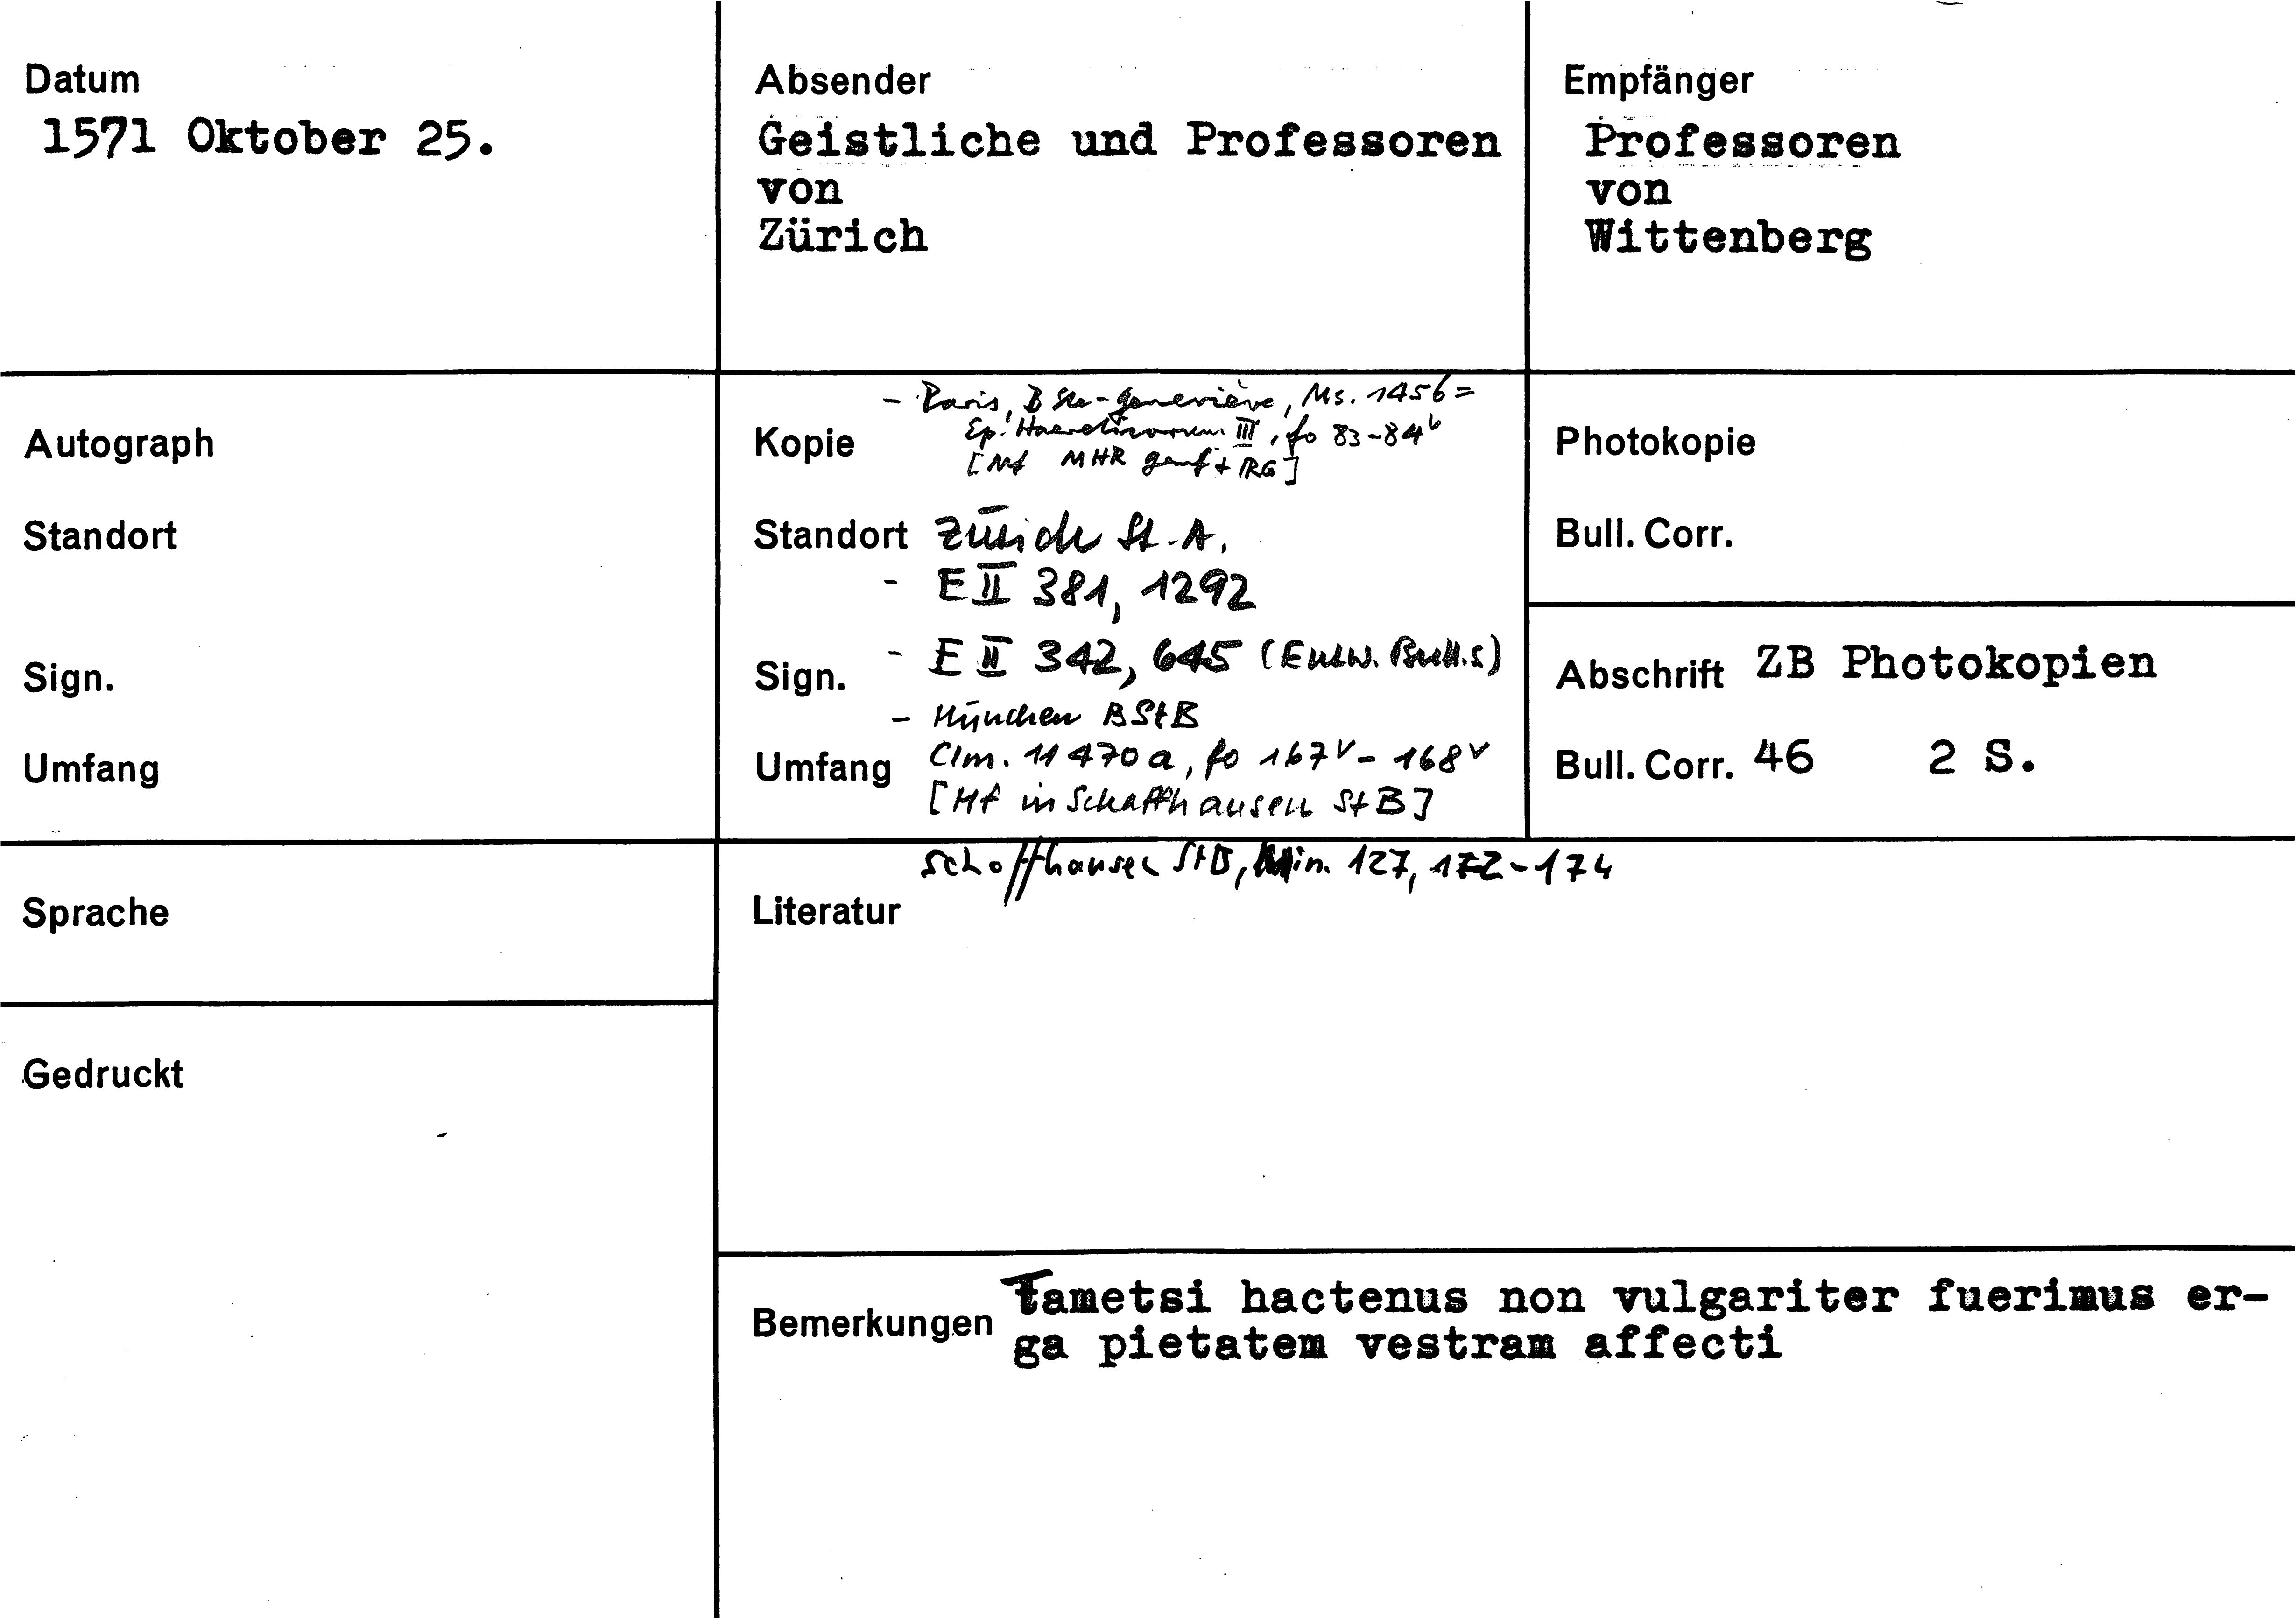 Datum
1571 Oktober 25.
Absender
Geistliche und Professoren
von
Zürich
Empfänger
Professoren
von
Wittenberg
Autograph
Standort
Sign.
Umfang
- Paris, B Ste-Geneviève, Ms. 1456 =
Ep. Haereticorum III, fo 83-84v
[Mf MHR Genf + IRG]
Kopie
Standort Zürich St.A.
- E II 381, 1292
Sign. - E II 342, 645 (Entw. Bull.s)
- München BStB
Umfang Clm. 11470a, fo 167v - 168v
[Mf in Schaffhausen StB]
Photokopie
Bull. Corr.
Abschrift ZB Photokopien
Bull. Corr. 46 2 S.
Sprache
Gedruckt
Schaffhausen StB, Min. 127, 172-174
Literatur
Bemerkungen Tametsi hactenus non vulgariter fuerimus er-
ga pietatem vestram affecti